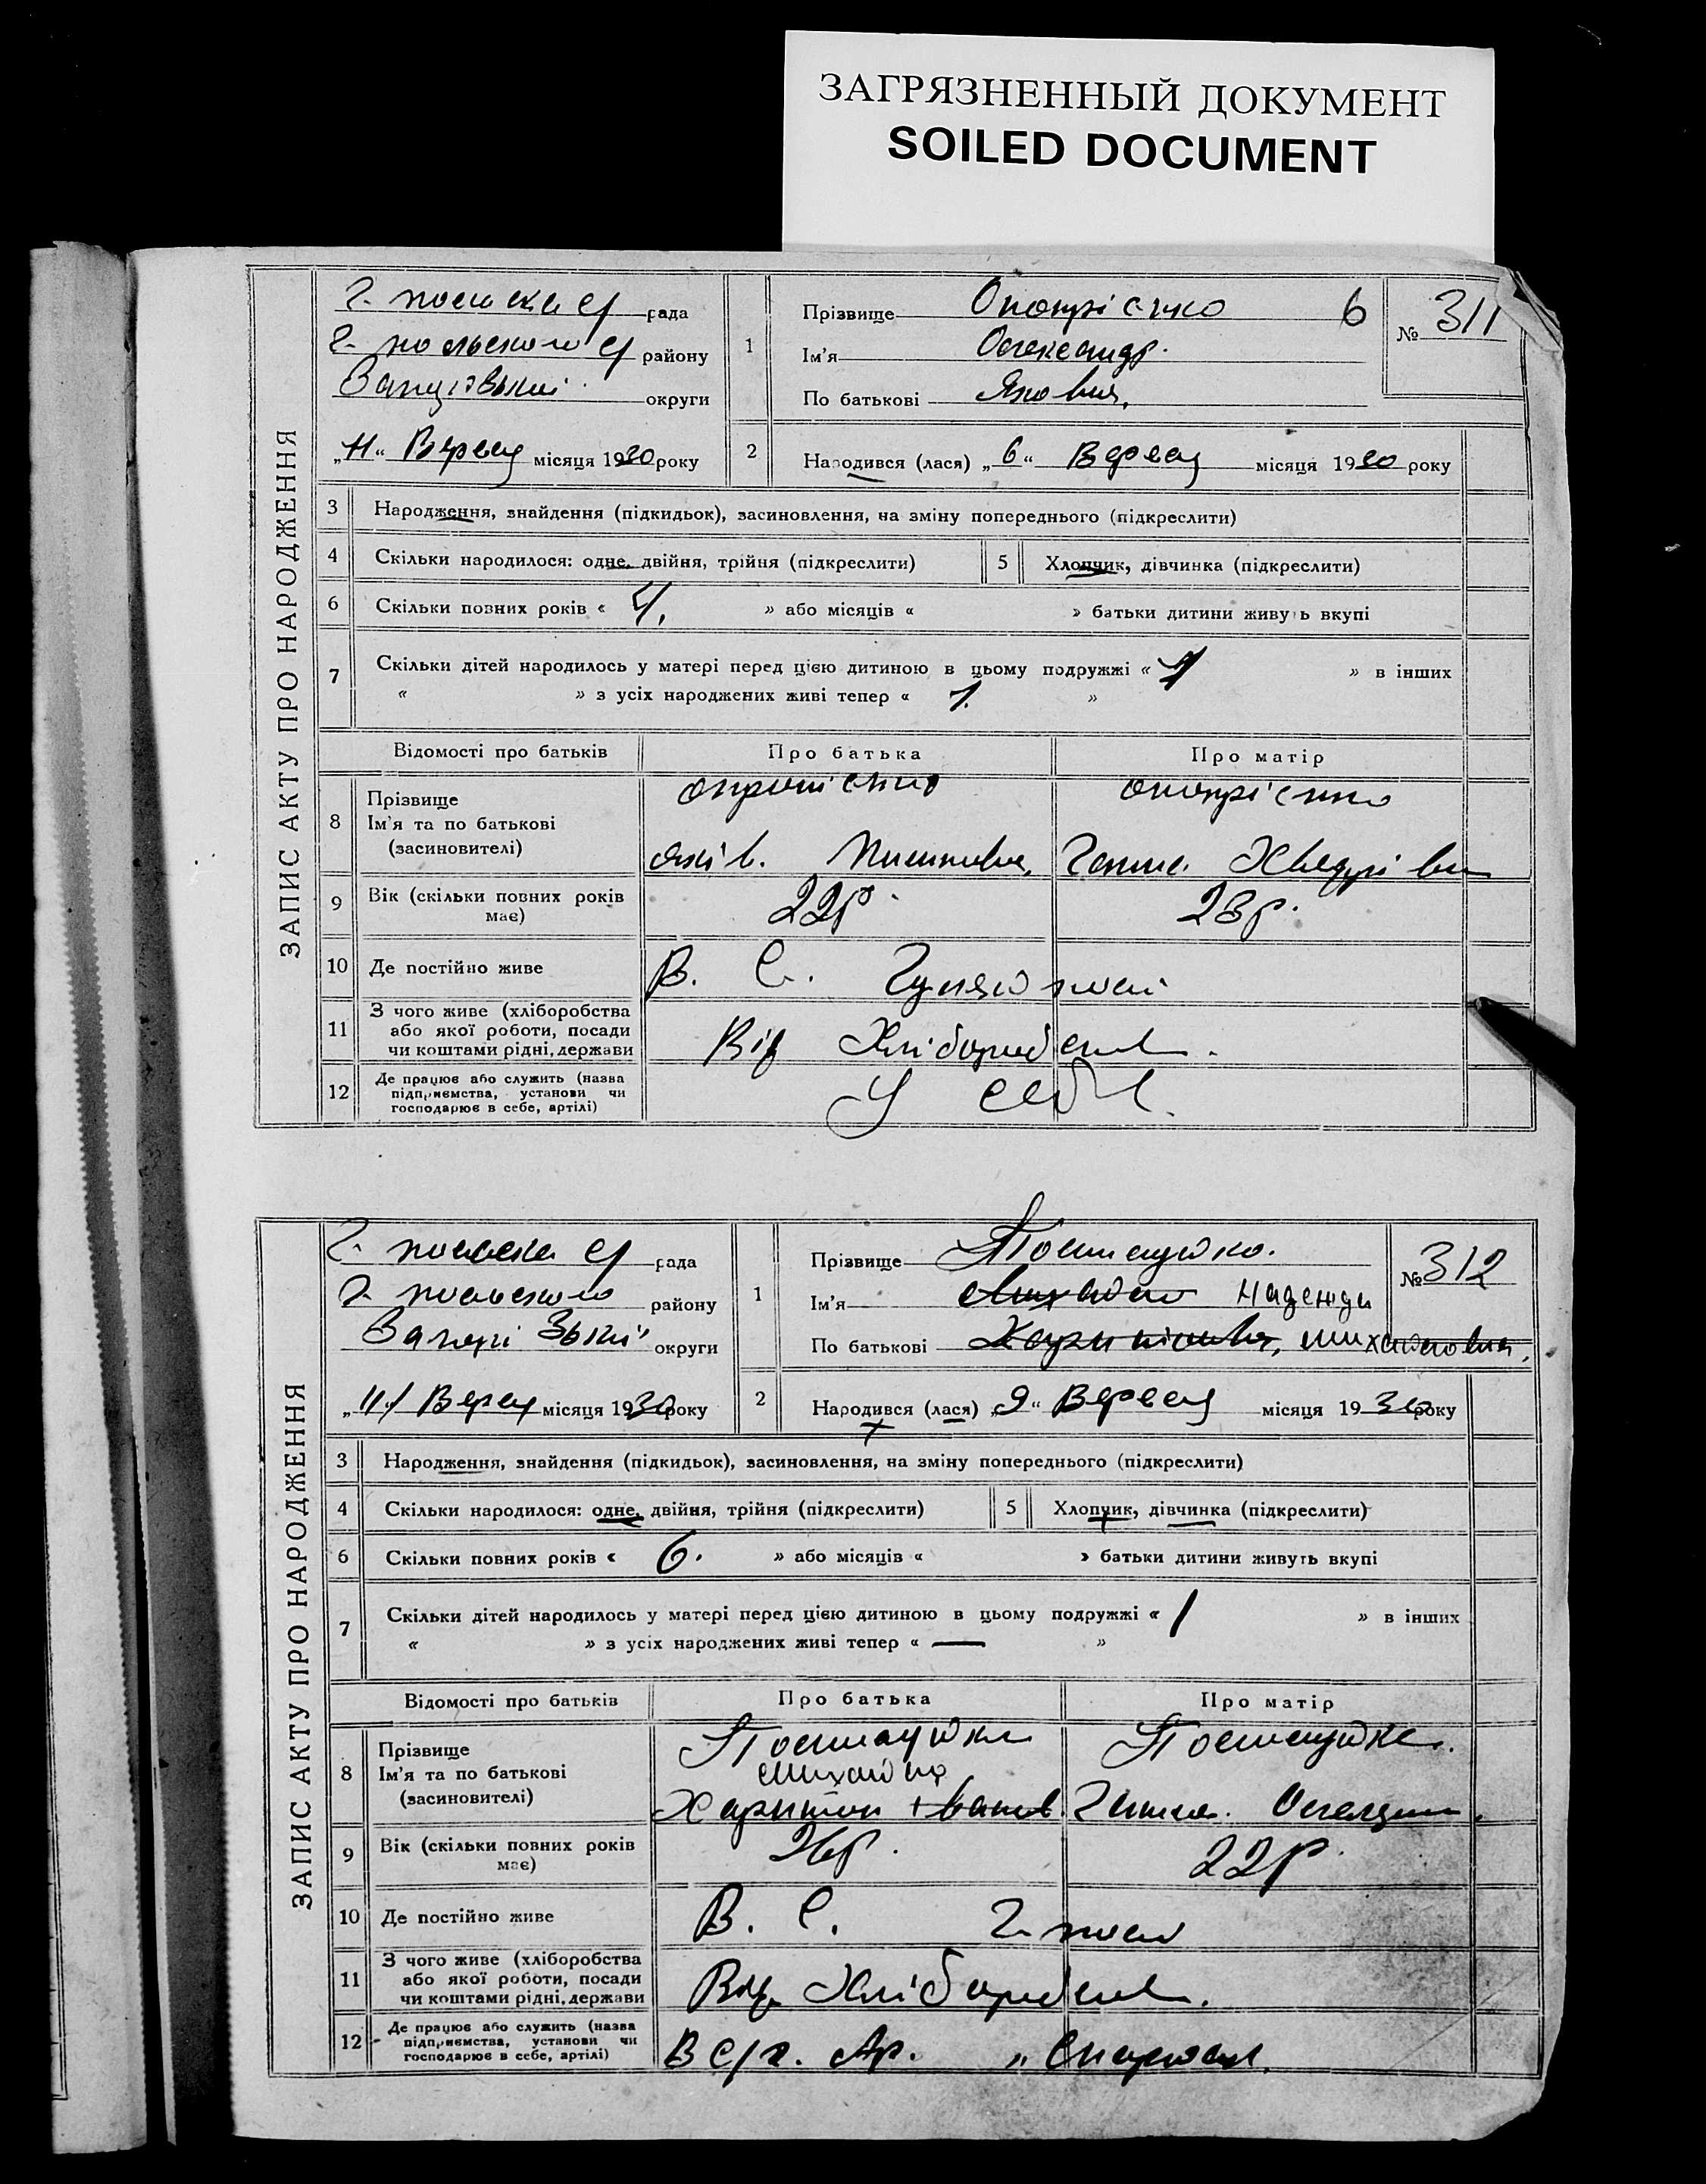 ЗАГРЯЗНЕННЫЙ ДОКУМЕНТ
SOILED DOCUMENT
ЗАПИС АКТУ ПРО НАРОДЖЕННЯ
рада
району
округи
„11“ Верес місяця 1930 року
1
Прізвище
6
Ім'я Олександр.
По батькові Якович,
№ 311
2
Народився (лася) „6“ Верес місяця 1930 року
3 Народження, знайдення (підкидьок), засиновлення, на зміну попереднього (підкреслити)
4 Скільки народилося: одне, двійня, трійня (підкреслити)
5 Хлопчик, дівчинка (підкреслити)
6 Скільки повних років « 4. » або місяців « » батьки дитини живуть вкупі
7 Скільки дітей народилось у матері перед цією дитиною в цьому подружжі « » в інших
« » з усіх народжених живі тепер « 1. »
Відомості про батьків Про батька Про матір
8 Прізвище
Ім'я та по батькові
(засиновителі)
Яків. Ганна
9 Вік (скільки повних років має) 22р. 23р.
10 Де постійно живе В. С. Гуляйполі
11 З чого живе (хліборобства або якої роботи, посади чи коштами рідні, держави Від Хліборобства.
12 Де працює або служить (назва підприємства, установи чи господарює в себе, артілі) У себе.
ЗАПИС АКТУ ПРО НАРОДЖЕННЯ
рада
району
округи
„11“ Верес місяця 1930 року
1
Прізвище
Ім'я Михайло Надежда
По батькові Михайловна.
№ 312
2
Народився (лася) „9“ Верес місяця 1930 року
3 Народження, знайдення (підкидьок), засиновлення, на зміну попереднього (підкреслити)
4 Скільки народилося: одне, двійня, трійня (підкреслити)
5 Хлопчик, дівчинка (підкреслити)
6 Скільки повних років « 6. » або місяців « » батьки дитини живуть вкупі
7 Скільки дітей народилось у матері перед цією дитиною в цьому подружжі « 1 » в інших
« » з усіх народжених живі тепер « — »
Відомості про батьків Про батька Про матір
8 Прізвище
Ім'я та по батькові
(засиновителі)
Харитон Іванов. Ганна.
9 Вік (скільки повних років має) 26р. 22р.
10 Де постійно живе В. С. Г-полі
11 З чого живе (хліборобства або якої роботи, посади чи коштами рідні, держави Від Хліборобства.
12 Де працює або служить (назва підприємства, установи чи господарює в себе, артілі) В с/г. Ар.